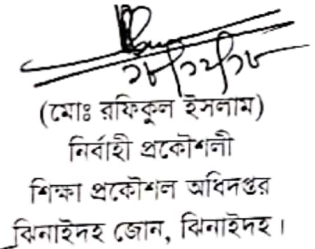 ১৮/১২/১৮
(মোঃ রফিকুল ইসলাম)
নির্বাহী প্রকৌশলী
শিক্ষা প্রকৌশল অধিদপ্তর
ঝিনাইদহ জোন, ঝিনাইদহ।